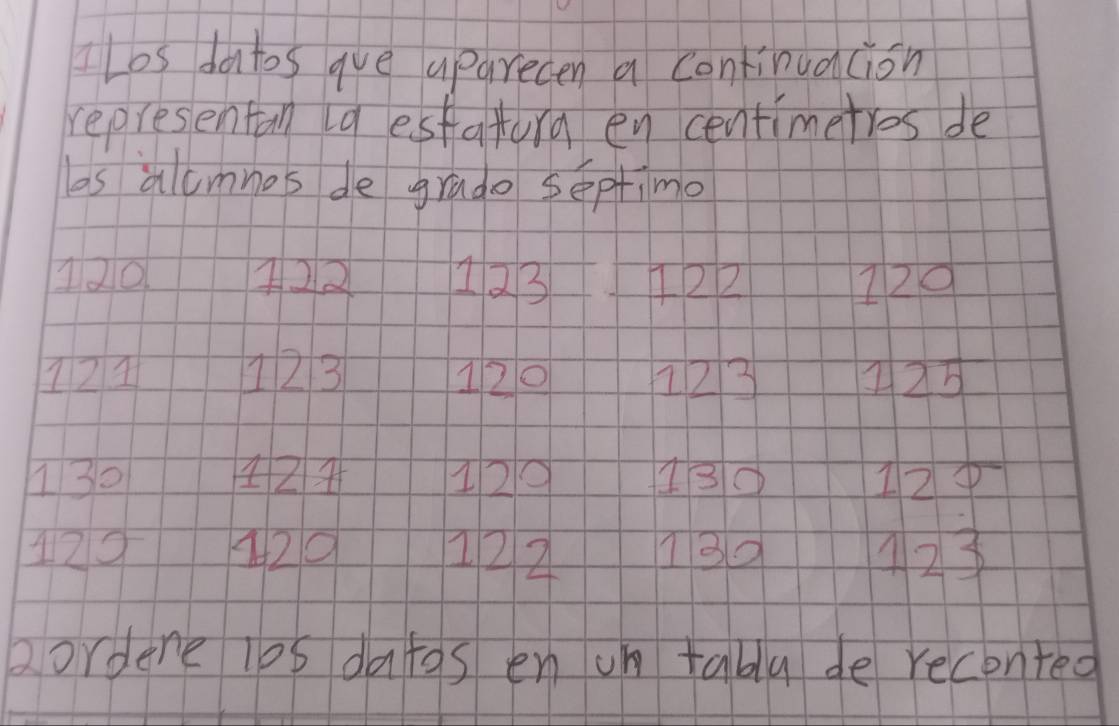 1 Los datos que aparecen a continuación
representan la estatura en centímetros de
los alumnos de grado séptimo
120 122 123 122 120
121 123 120 123 125
130 121 120 130 120
120 120 122 130 123
2 ordene los datos en un tabla de reconteo